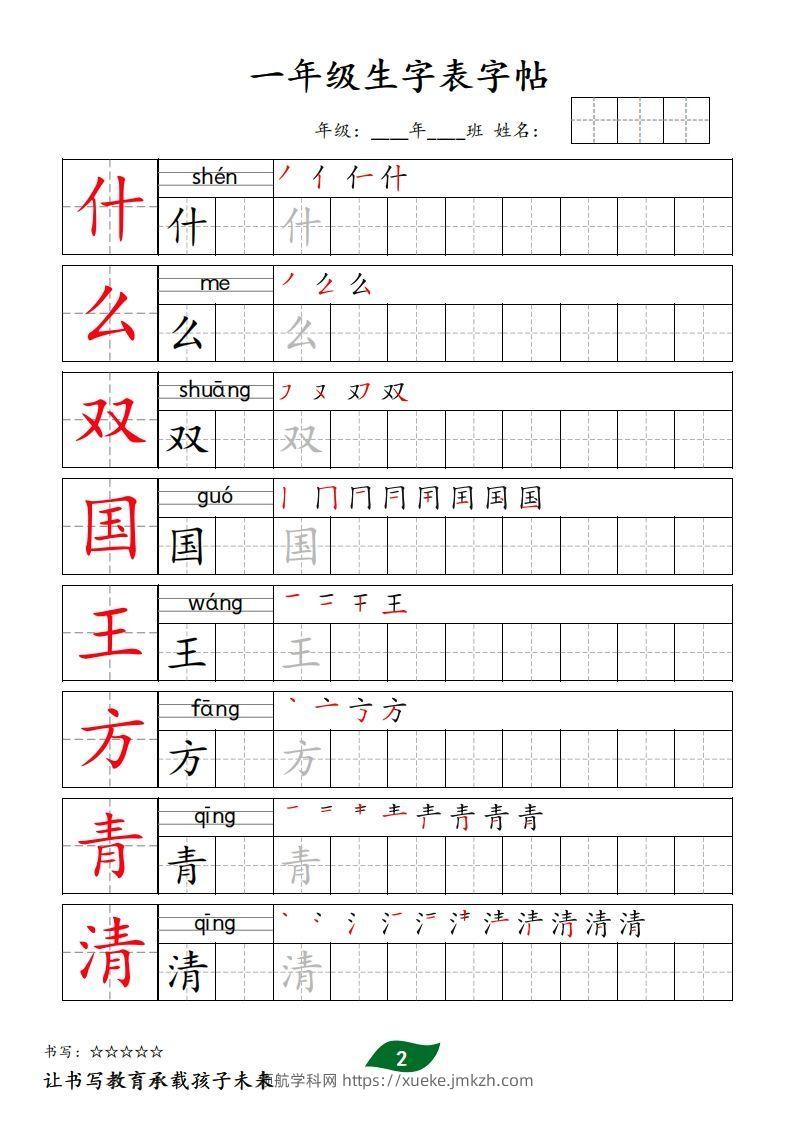 一年级生字表字帖
年级：____年____班 姓名：
什 shén 丿 亻 仁 什
什 什
么 me 丿 么 么
么 么
双 shuāng フ 又 双 双
双 双
国 guó 丨 冂 国
国 国
王 wáng 一 二 干 王
王 王
方 fāng 丶 亠 方
方 方
青 qīng 一 二 青
青 青
清 qīng 丶 冫 氵 清
清 清
书写：☆☆☆☆☆
2
让书写教育承载孩子未来
领航学科网 https://xueke.jmkzh.com